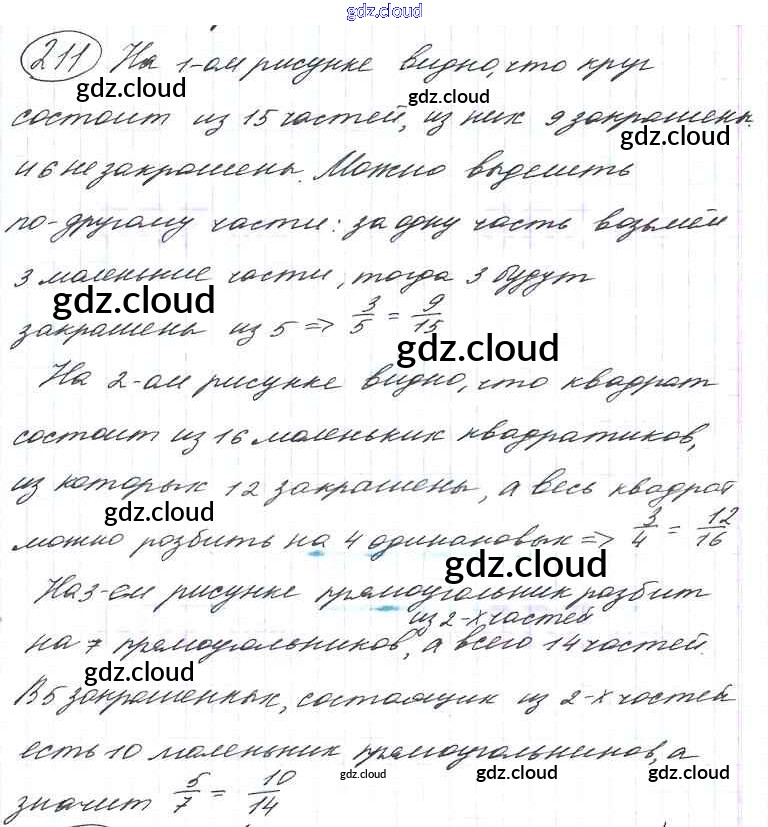 gdz.cloud
211 На 1-ом рисунке видно, что круг
gdz.cloud gdz.cloud
состоит из 15 частей, из них 9 закрашены
gdz.cloud
и 6 не закрашены. Можно выделить
по-другому части: за одну часть возьмём
3 маленькие части, тогда 3 будут
gdz.cloud
закрашены из 5 => 3/5 = 9/15
gdz.cloud
На 2-ом рисунке видно, что квадрат
состоит из 16 маленьких квадратиков,
из которых 12 закрашены, а весь квадрат
gdz.cloud
можно розбить на 4 одинаковых => 3/4 = 12/16
gdz.cloud
На 3-ем рисунке прямоугольник розбит
из 2-х частей
на 7 прямоугольников, а всего 14 частей.
gdz.cloud
В 5 закрашенных, состоящих из 2-х частей
есть 10 маленьких прямоугольников, а
gdz.cloud gdz.cloud gdz.cloud
значит 5/7 = 10/14